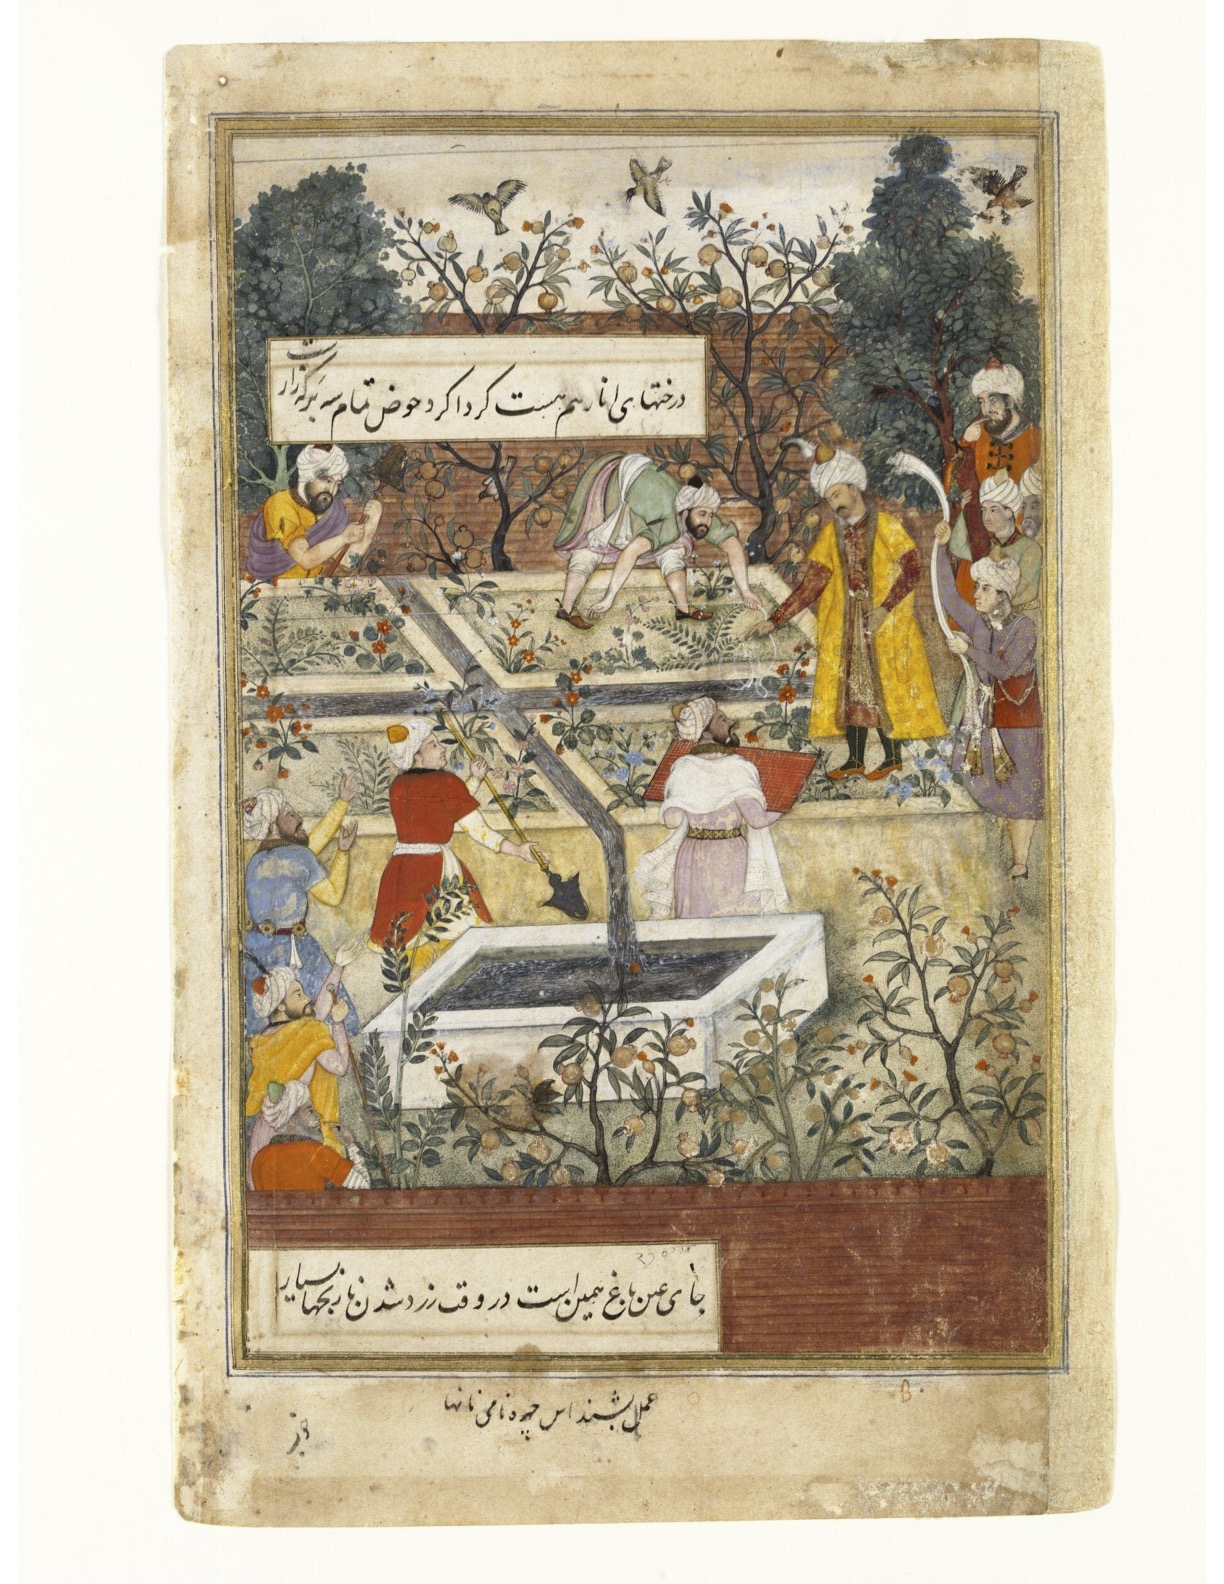 درختهای انار هم هست کرداکرد حوض تمام سه برکه زار ست
جای عین باغ همین است در وقت زرد شدن نارنجها بسیار
عمل بشنداس چهره نامی نانها